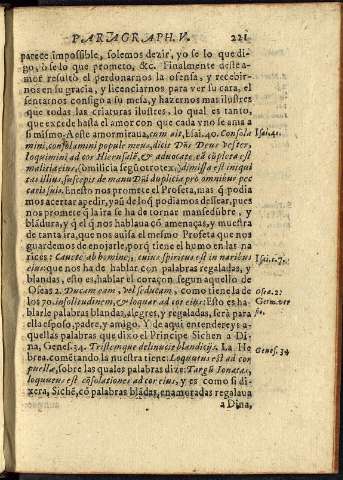 PARAGRAPH.V. 221
parece impossible, solemos dezir, yo se lo que di-
go, ò se lo que prometo, &c. Finalmente deste a-
mor resultò el perdonarnos la ofensa, y recebir-
nos en su gracia, y licenciarnos para ver su cara, el
sentarnos consigo a su mesa, y hazernos mas ilustres
que todas las criaturas ilustres, lo qual es tanto,
que excede hasta el amor con que cada vno se ama a
si mismo. A este amor miraua, cum ait, Esai. 40. Consola
Isai. 41.
mini, consolamini popule meus, dicit Dñs Deus vester,
loquimini ad cor Hierusalē, & aduocate eā
malitia eius, (ò milicia segū otro tex.) dimissa est iniqui
tas illius, suscepit de manu Dñi duplicia pro omnibus pec
catis suis. En esto nos promete el Profeta, mas q̃ podia
mos acertar a pedir, y aū de loq̃ podiamos dessear, pues
nos promete q̃ la ira se ha de tornar mansedūbre, y
blādura, y q̃ el q̃ nos hablaua cō amenaças, y muestra
de tanta ira, que nos auisa el mesmo Profeta que nos
guardemos de enojarle, porq̃ tiene el humo en las na
rices: Cauete ab homine, cuius spiritus est in naribus
Isai. 1. 7.
eius: que nos ha de hablar con palabras regaladas, y
blandas, esto es, hablar el coraçon segun aquello de
Oseas 2. Ducam eam, vel seducam, como tiene la de
Osea. 2.
los 70. in solitudinem, & loquar ad cor eius: Esto es ha-
Germ. ver
blarle palabras blandas, alegres, y regaladas, serà para
sio.
ella esposo, padre, y amigo. Y de aqui entendereys a-
quellas palabras que dixo el Principe Sichen a Di
na, Genes. 34. Tristemque deliniuit blanditijs. La He
Genes. 34
brea. comētando la nuestra tiene: Loquutus est ad cor
puellæ, sobre las quales palabras dize: Targū Ionatas,
loquutus est cōsolationes ad cor eius, y es como si di-
xera, Sichē, cō palabras blādas, enamoradas regalaua
a Dina,